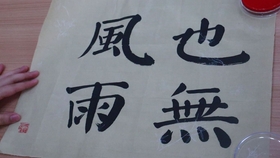 也無
風雨